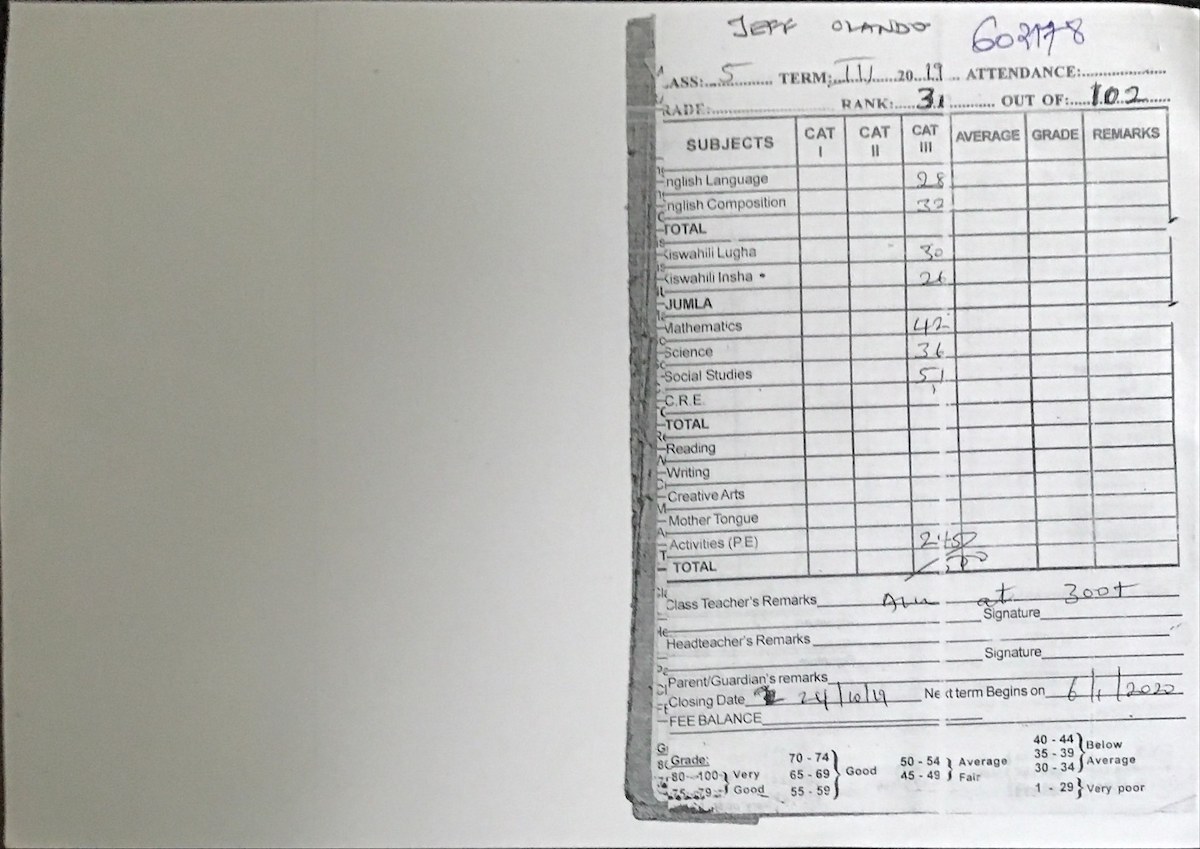 JEFF OLANDO 602178
ASS: 5 TERM: III 2019 ATTENDANCE:
RADE: RANK: 31 OUT OF: 102
SUBJECTS CAT I CAT II CAT III AVERAGE GRADE REMARKS
nglish Language 28
nglish Composition 32
TOTAL
Kiswahili Lugha 30
Kiswahili Insha 26
JUMLA
Mathematics 42
Science 36
Social Studies 51
C.R.E.
TOTAL
Reading
Writing
Creative Arts
Mother Tongue
Activities (P.E)
TOTAL
Class Teacher's Remarks Aim at 300+
Signature
Headteacher's Remarks
Signature
Parent/Guardian's remarks
Closing Date 24/10/19 Next term Begins on 6/1/2020
FEE BALANCE
Grade:
80 - 100 Very
75 - 79 Good
70 - 74
65 - 69 Good
55 - 59
50 - 54 Average
45 - 49 Fair
40 - 44 Below
35 - 39 Average
30 - 34
1 - 29 Very poor